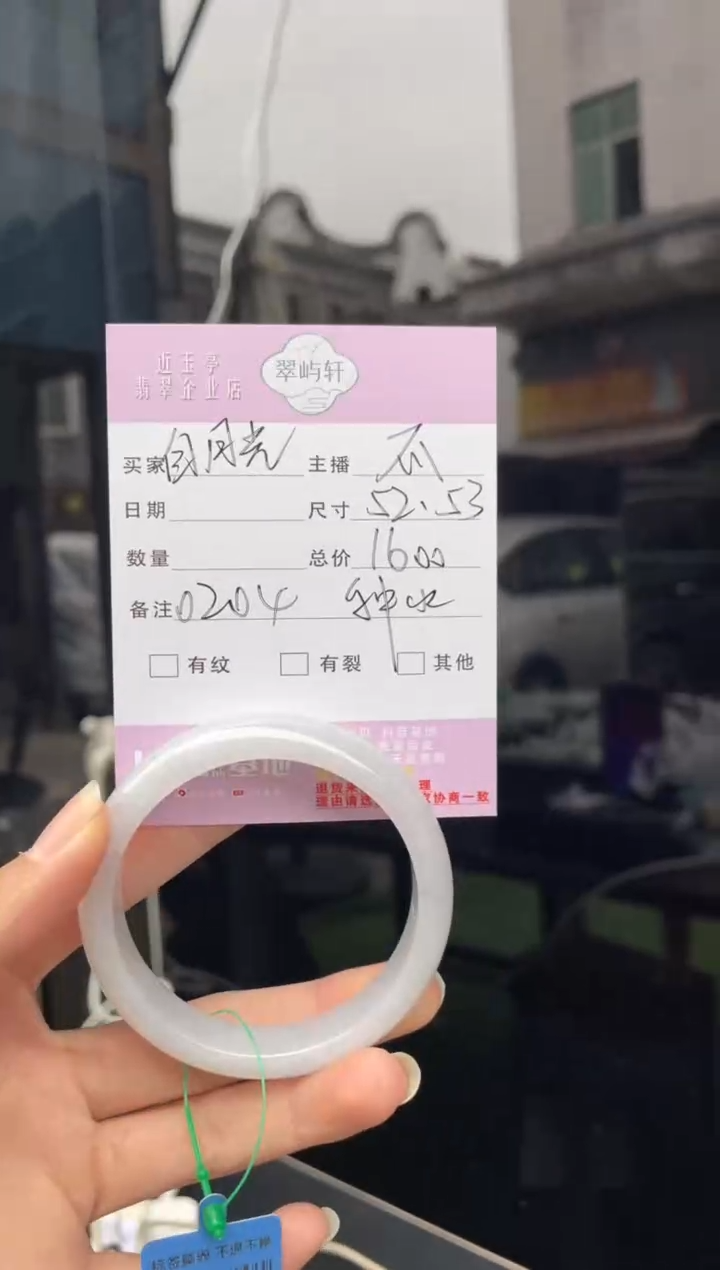 近玉亭
翡翠企业店
翠屿轩
买家 白月光 主播 爪
日期 尺寸 52.53
数量 总价 1600
备注 0204 种水
有纹 有裂 其他
基地
退货 理
理由请 协商一致
标签 不退不换